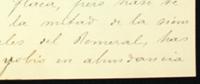 flaca, pero hase se
la mitad de la siem
les del Romeral, has
yobis en abundancia